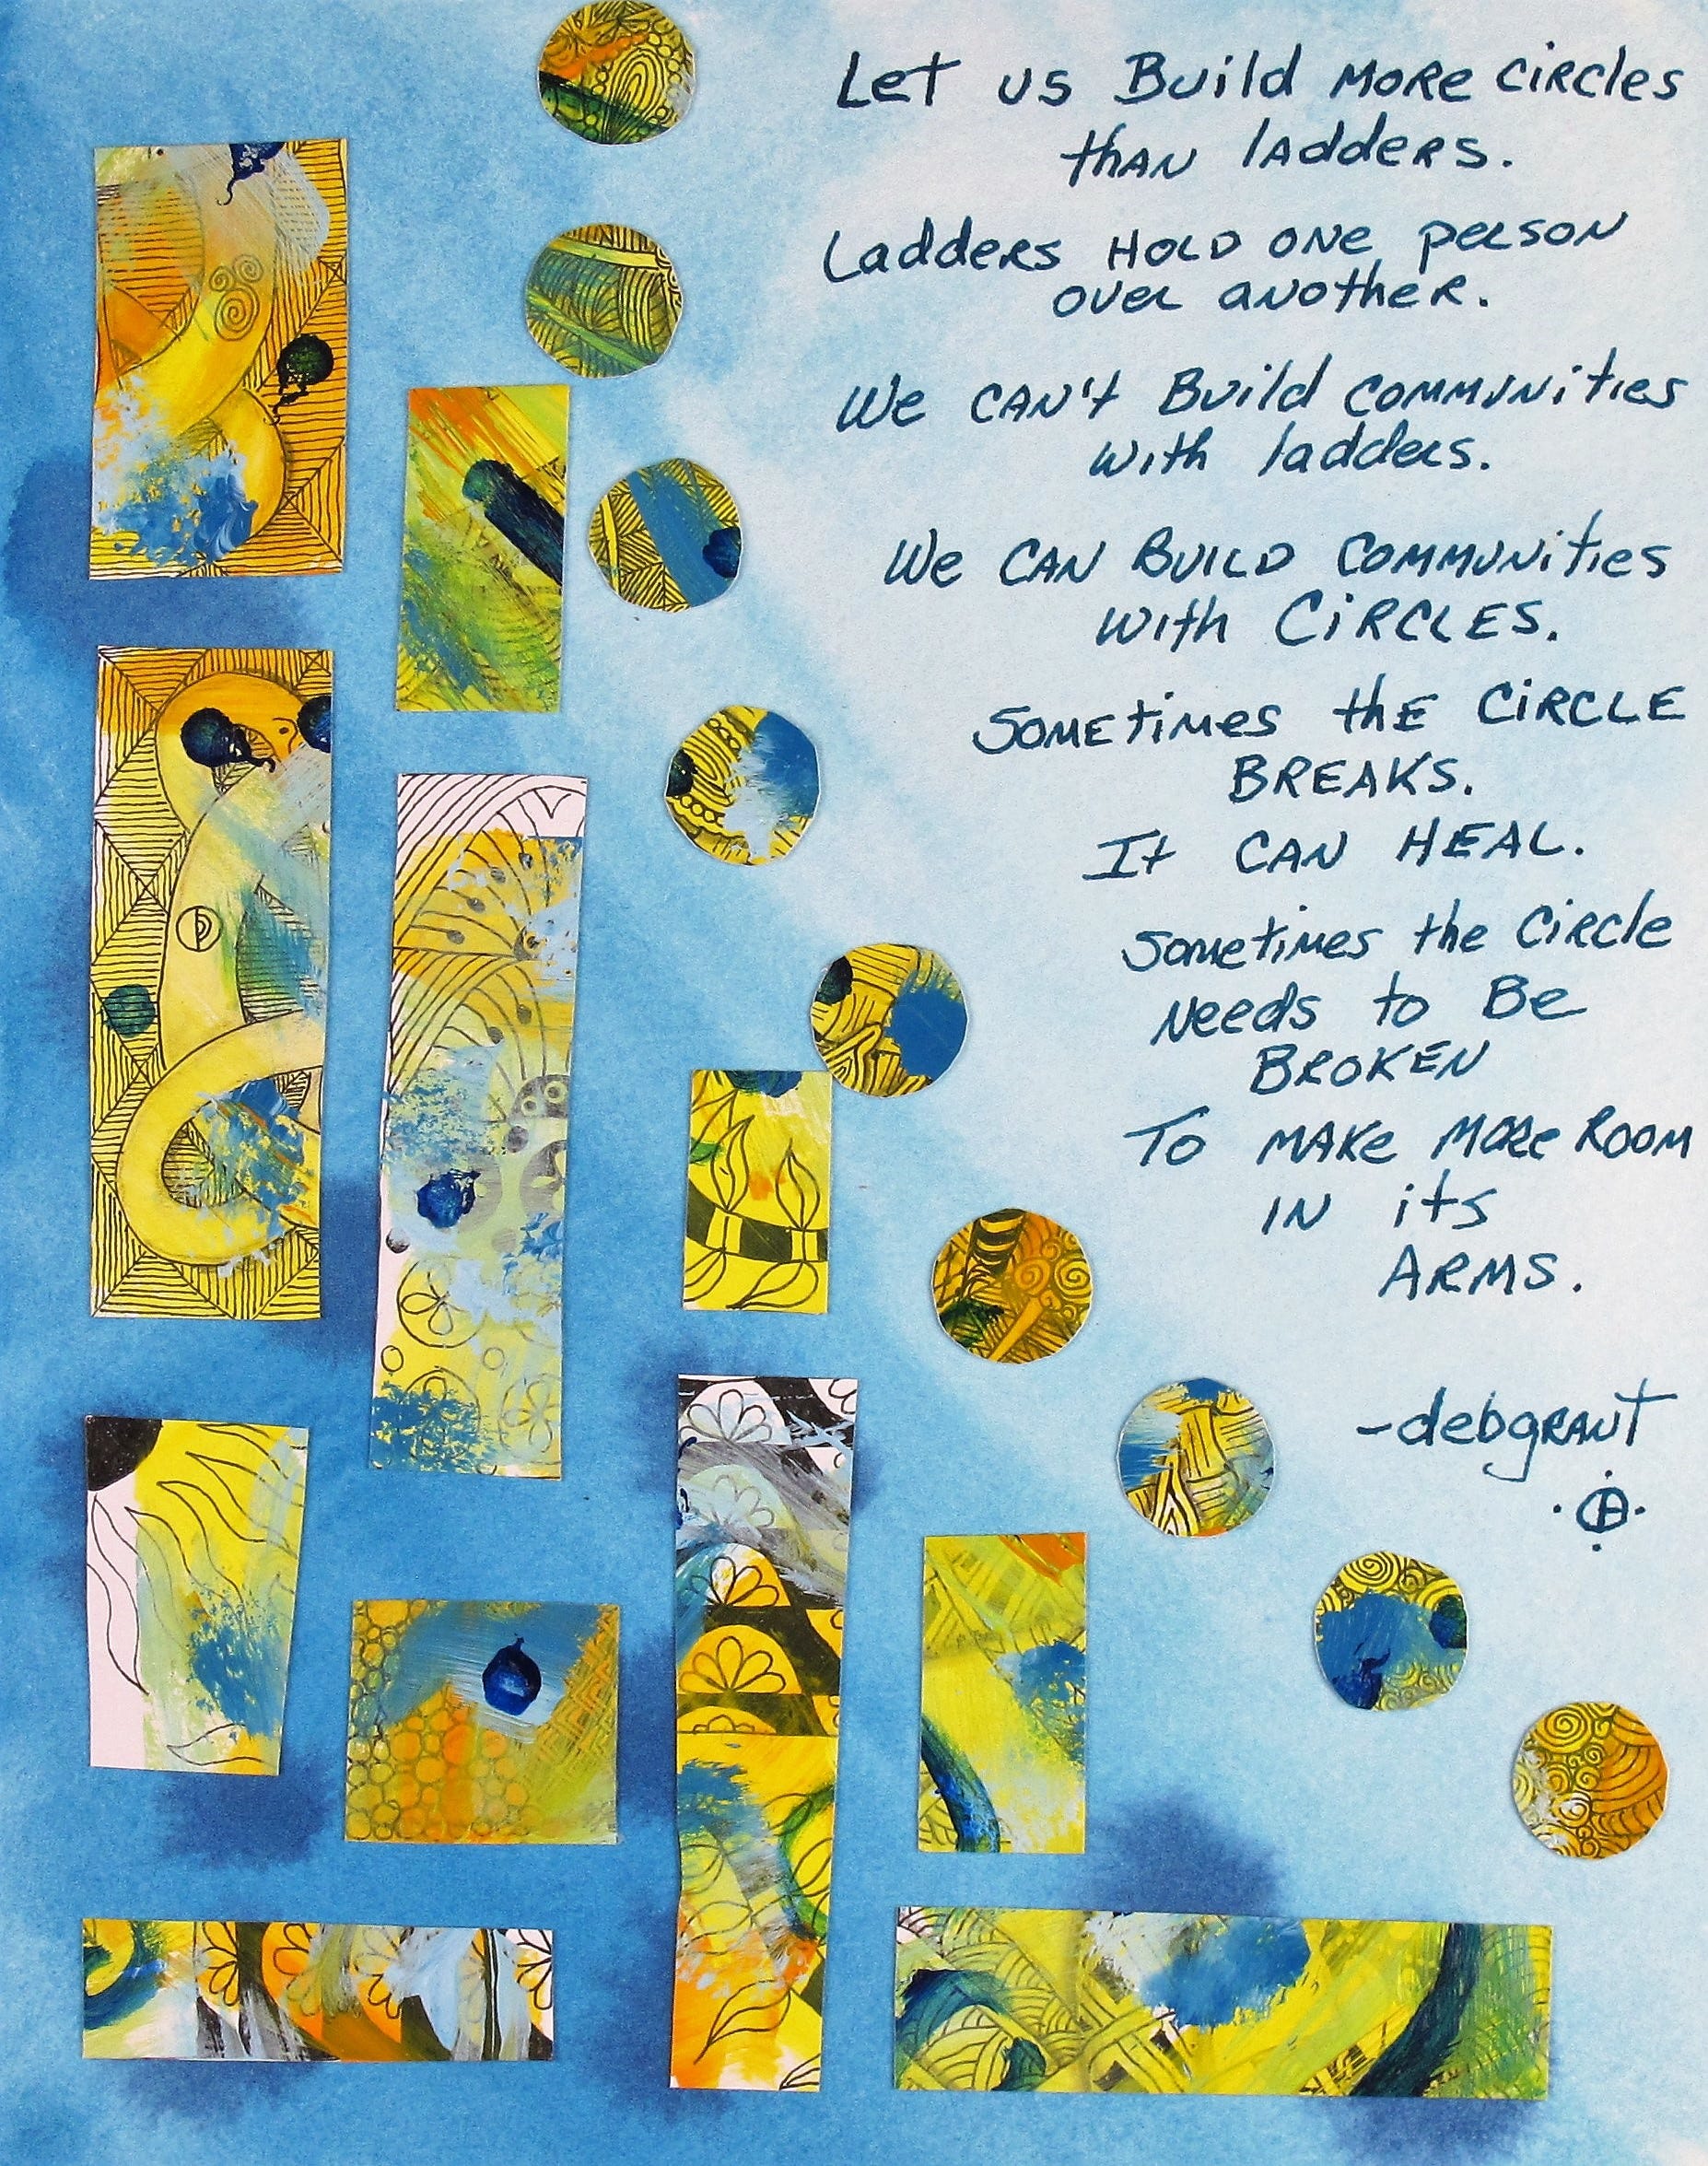 Let us Build more circles
than ladders.
Ladders hold one person
over another.
We can't Build communities
with ladders.
We can Build communities
with circles.
Sometimes the circle
breaks.
It can heal.
Sometimes the circle
needs to Be
Broken
To make more room
in its
arms.
-debgrant